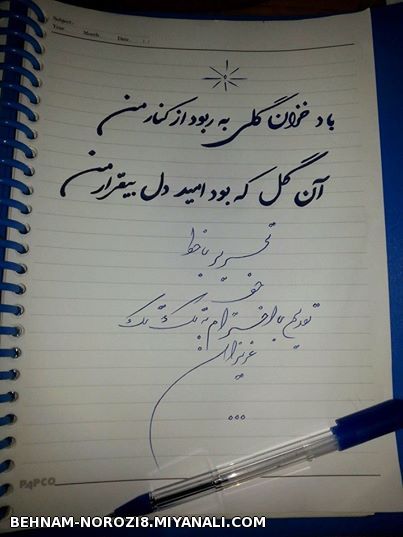 Subject:
Year. Month. Date. ( )
باد خزان گلی به ربود از کنار من
آن گل که بود امید دل بیقرار من
تحریر با خط
خفی
تقدیم با احترام به تک تک
عزیزان
PAPCO
BEHNAM-NOROZI8.MIYANALI.COM